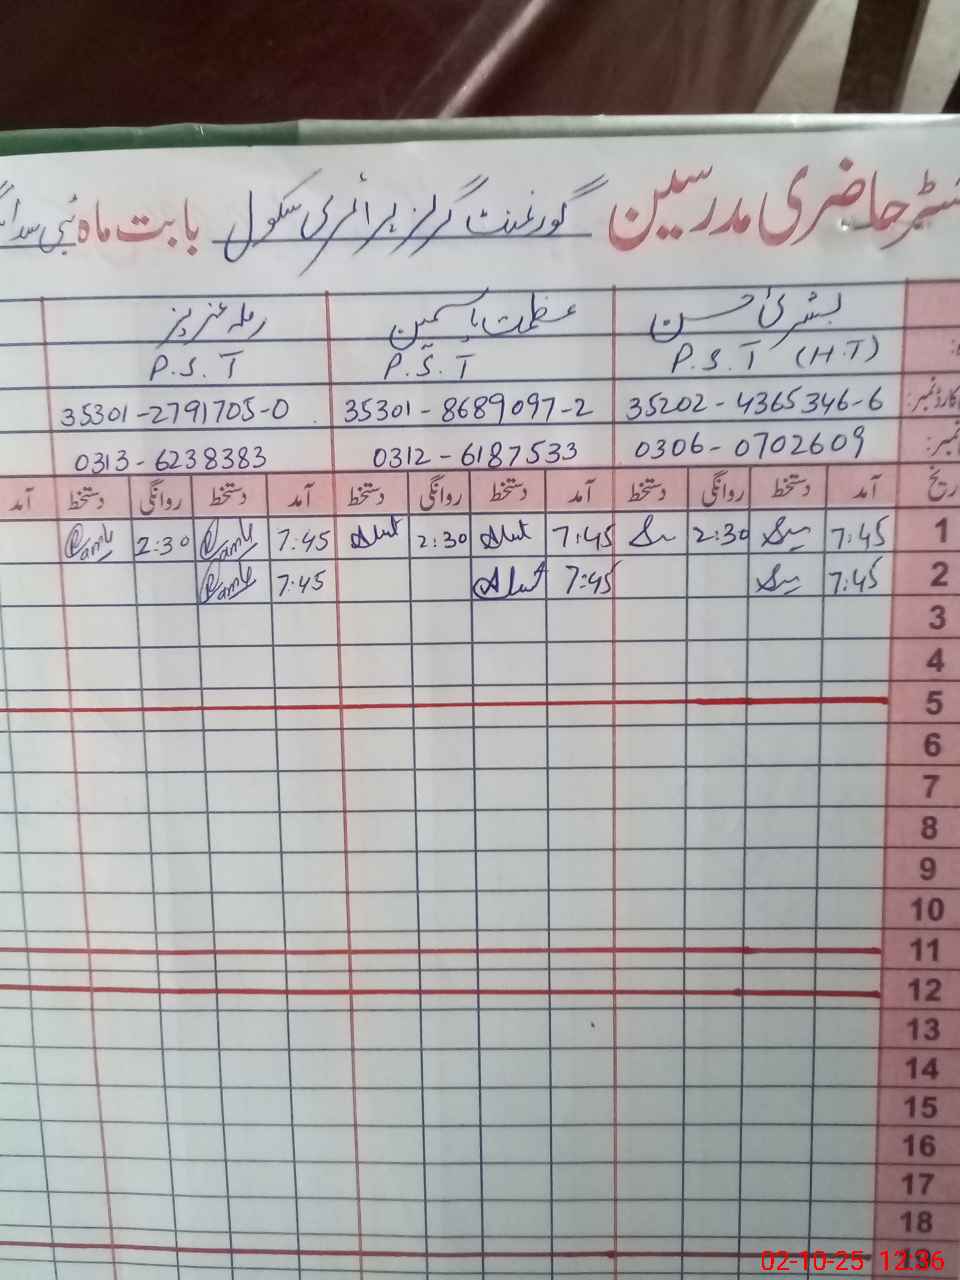 رجسٹر حاضری مدرسین گورنمنٹ گرلز پرائمری سکول بابت ماہ
بشریٰ حسن عظمت یاسمین رملہ عزیز
P.S.T (H.T) P.S.T P.S.T
کارڈ نمبر: 35202-4365346-6 35301-8689097-2 35301-2791705-0
نمبر: 0306-0702609 0312-6187533 0313-6238383
تاریخ آمد دستخط روانگی دستخط آمد دستخط روانگی دستخط آمد دستخط روانگی دستخط آمد
1 7:45 2:30 7:45 2:30 7:45 2:30
2 7:45 7:45 7:45
3
4
5
6
7
8
9
10
11
12
13
14
15
16
17
18
19
02-10-25 12:36